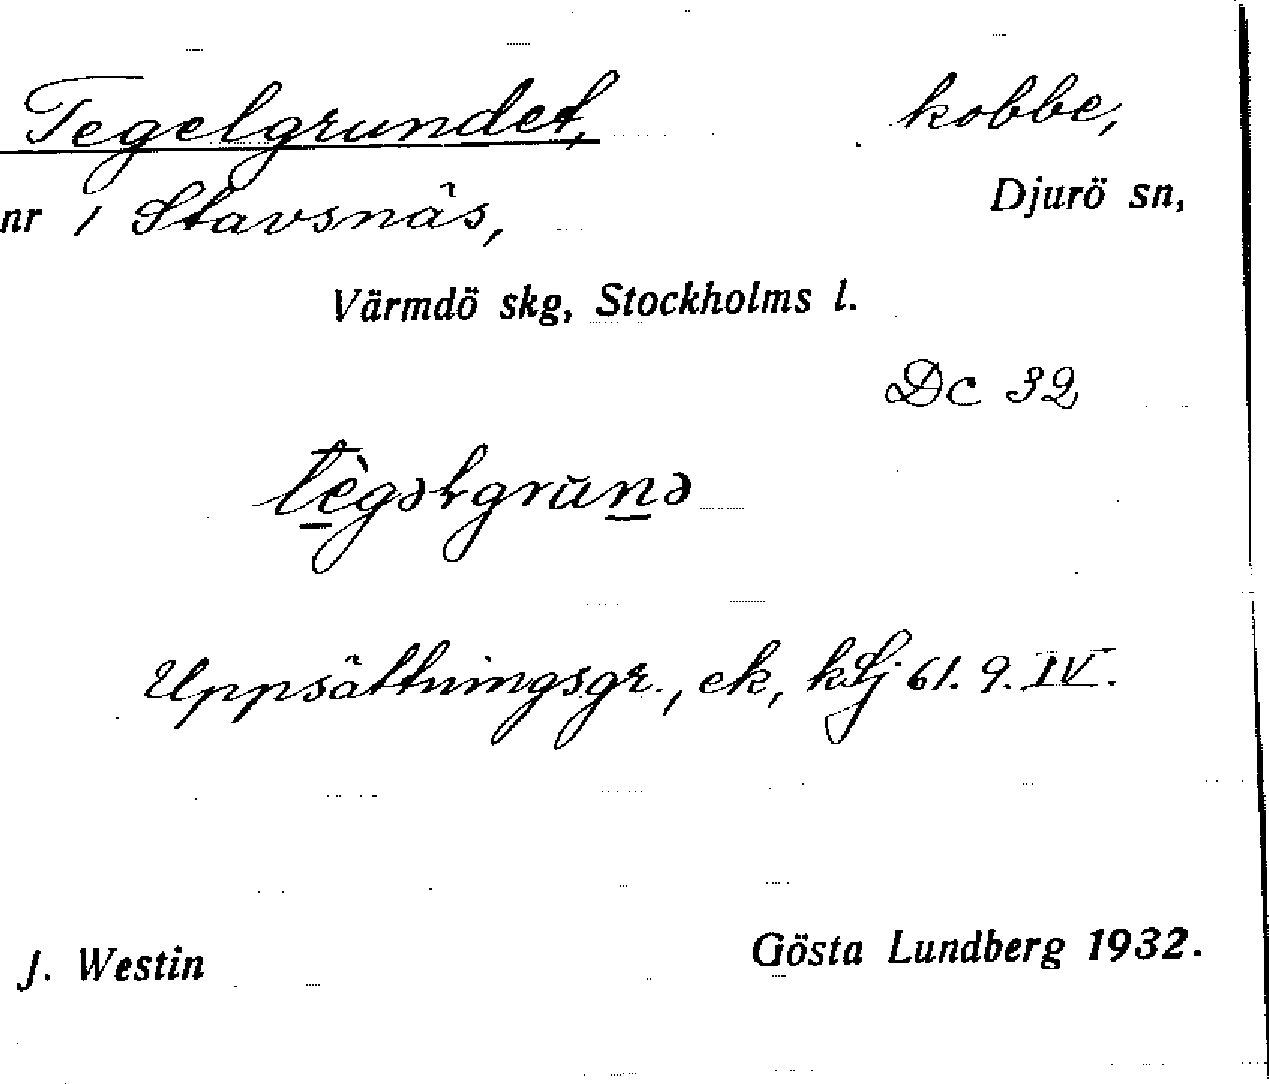 Tegelgrundet, kobbe,
nr 1 Stavsnäs, Djurö sn,
Värmdö skg, Stockholms l.
Dc 32
tègəlgrunə
Uppsättningsgr., ek, 61. 9. IV.
J. Westin Gösta Lundberg 1932.